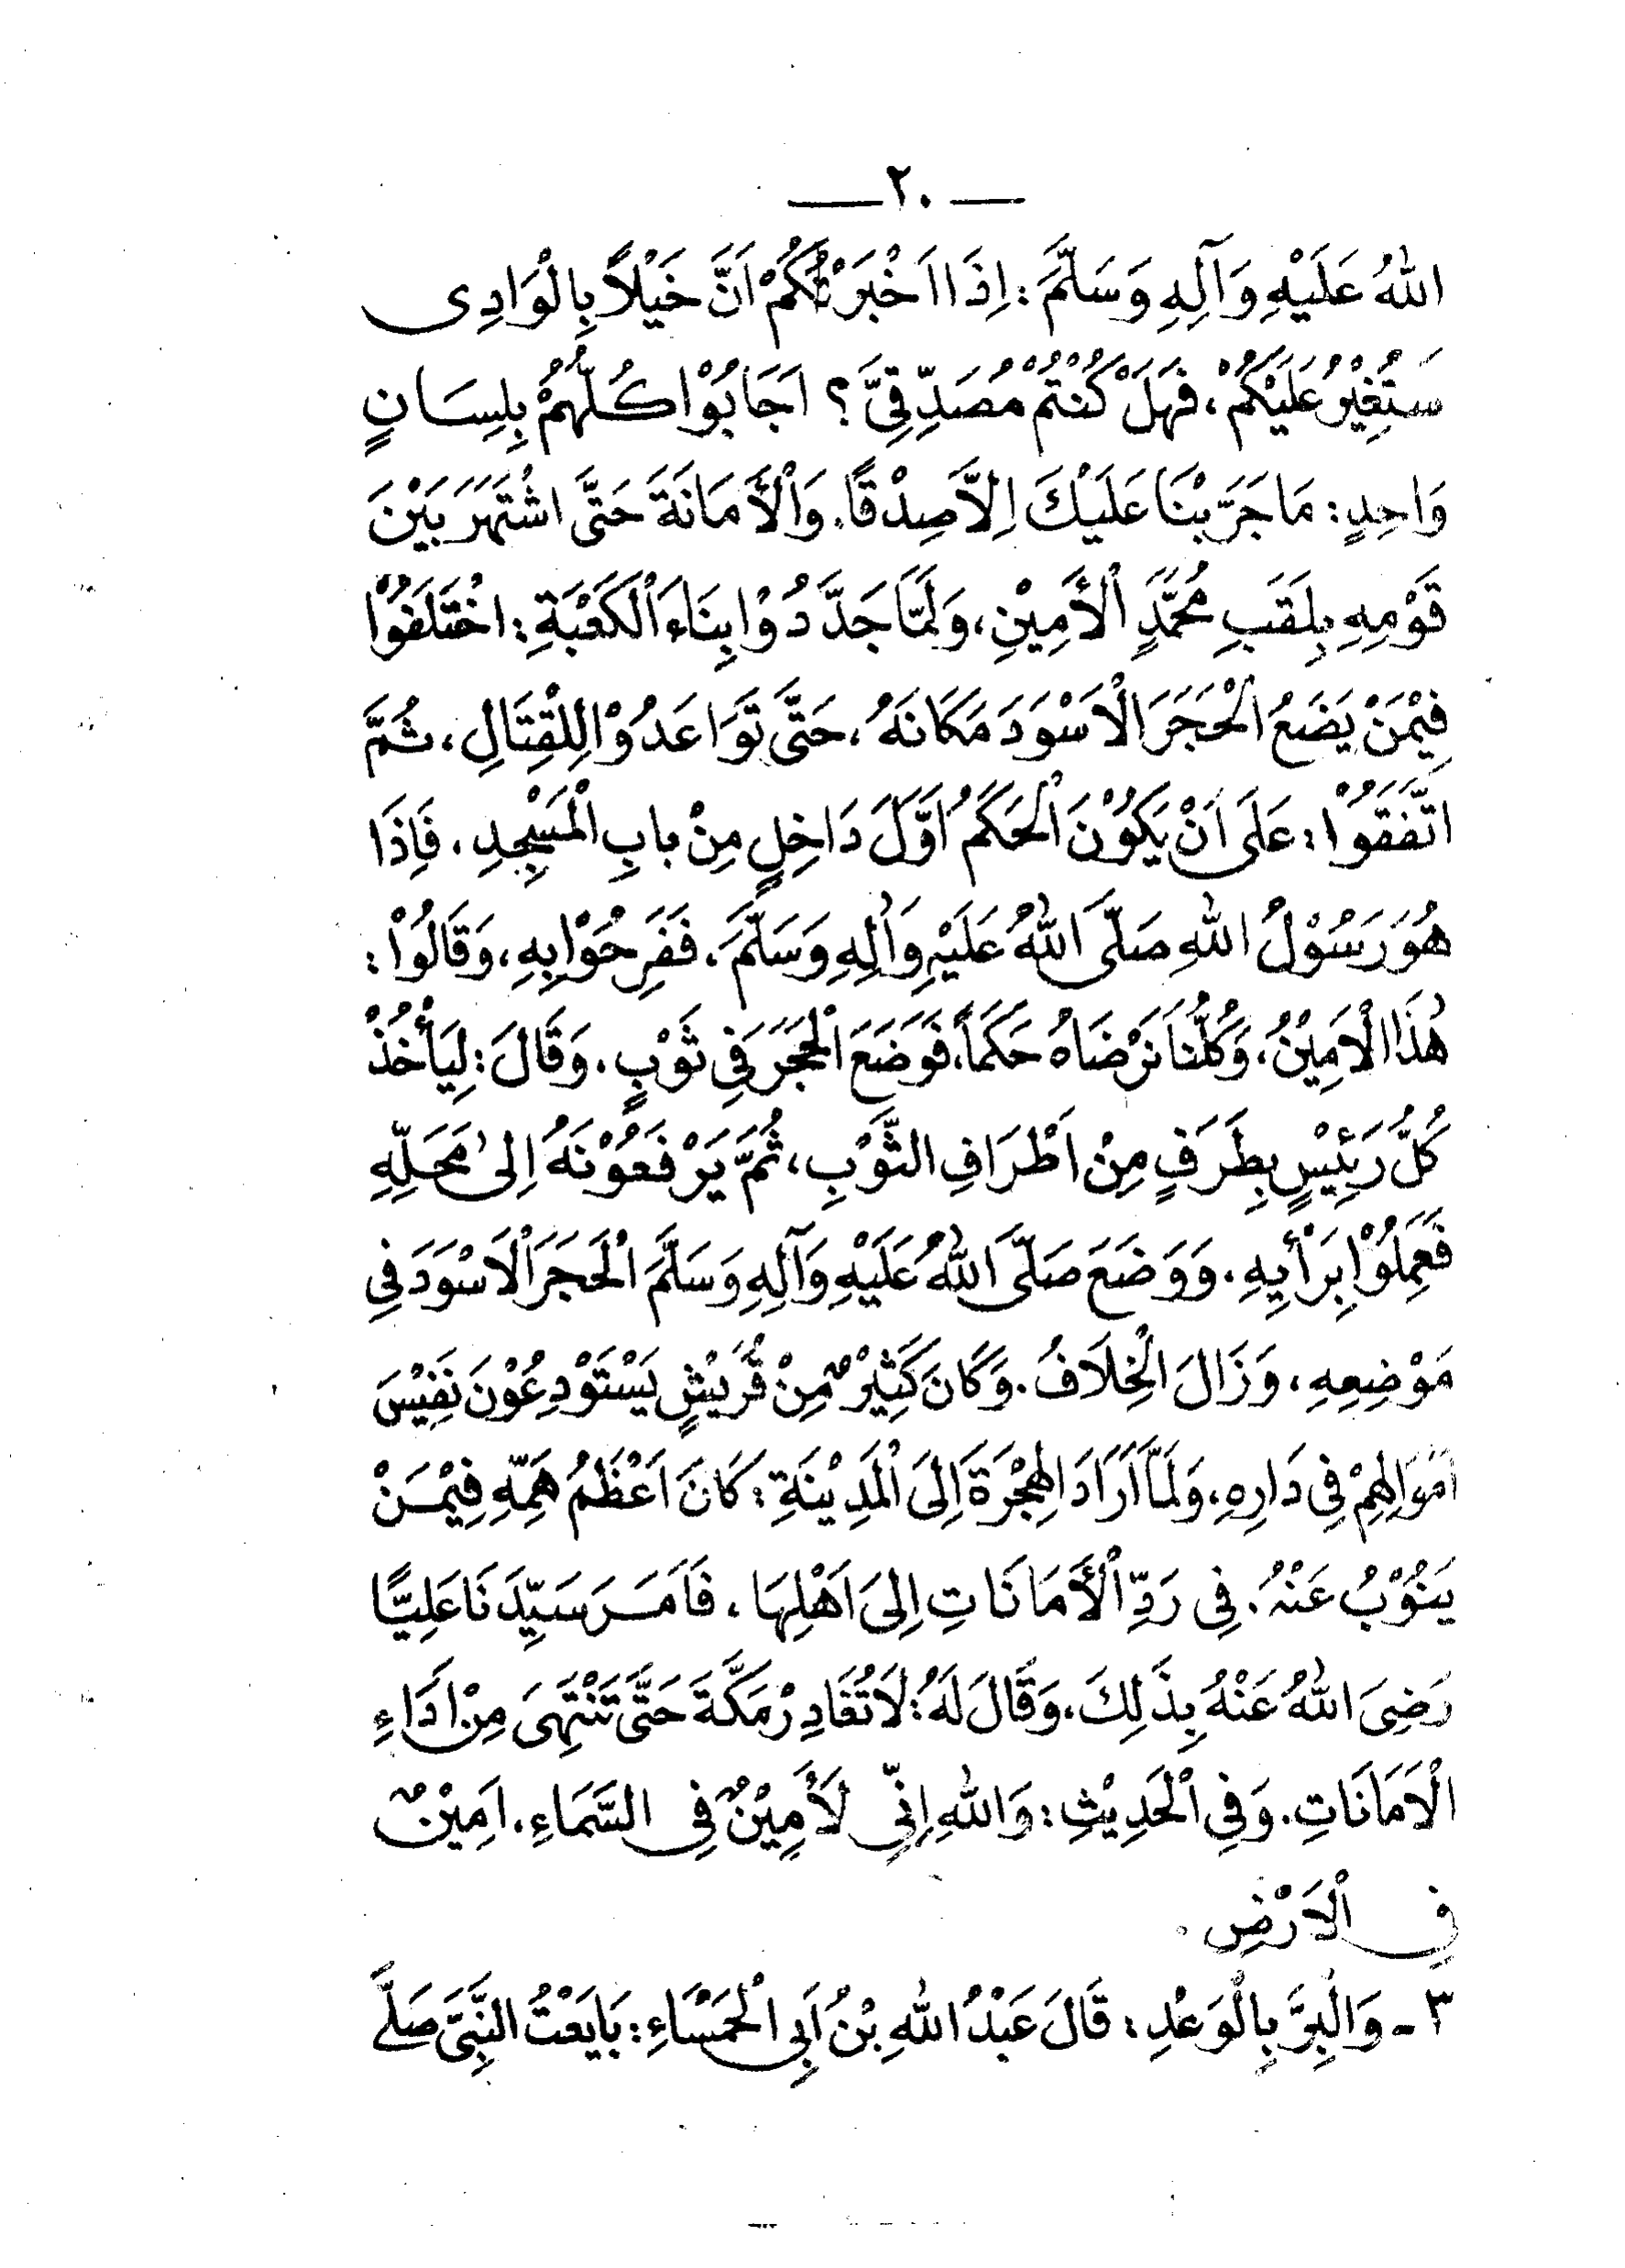 — ٢٠ —
اللهُ عَلَيْهِ وَآلِهِ وَسَلَّمَ : اِذَا اَخْبَرْتُكُمْ اَنَّ خَيْلاً بِالْوَادِى
سَتُغِيْرُ عَلَيْكُمْ ، فَهَلْ كُنْتُمْ مُصَدِّقِىَّ ؟ اَجَابُوْا كُلُّهُمْ بِلِسَانٍ
وَاحِدٍ : مَا جَرَّبْنَا عَلَيْكَ اِلاَّ صِدْقًا . وَالْأَمَانَةَ حَتَّى اشْتَهَرَ بَيْنَ
قَوْمِهِ بِلَقَبِ مُحَمَّدٍ الْأَمِيْنِ ، وَلَمَّا جَدَّدُوْا بِنَاءَ الْكَعْبَةِ : اخْتَلَفُوْا
فِيْمَنْ يَضَعُ الْحَجَرَ الْاَسْوَدَ مَكَانَهُ ، حَتَّى تَوَاعَدُوْا لِلْقِتَالِ ، ثُمَّ
اتَّفَقُوْا : عَلَى اَنْ يَكُوْنَ الْحَكَمُ اَوَّلَ دَاخِلٍ مِنْ بابِ الْمَسْجِدِ . فَاِذَا
هُوَ رَسُوْلُ اللهِ صَلَّى اللهُ عَلَيْهِ وَاٰلِهِ وَسَلَّمَ . فَفَرِحُوْا بِهِ ، وَقَالُوْا :
هٰذَا الْاَمِيْنُ ، وَكُلُّنَا نَرْضَاهُ حَكَمًا ، فَوَضَعَ الْحَجَرَ فِى ثَوْبٍ . وَقَالَ : لِيَأْخُذْ
كُلُّ رَئِيْسٍ بِطَرَفٍ مِنْ اَطْرَافِ الثَّوْبِ ، ثُمَّ يَرْفَعُوْنَهُ اِلىٰ مَحَلِّهِ
فَعَمِلُوْا بِرَأْيِهِ . وَوَضَعَ صَلَّى اللهُ عَلَيْهِ وَآلِهِ وَسَلَّمَ الْحَجَرَ الْاَسْوَدَ فِى
مَوْضِعِهِ ، وَزَالَ الْخِلَافُ . وَكَانَ كَثِيْرٌ مِنْ قُرَيْشٍ يَسْتَوْدِعُوْنَ نَفِيْسَ
اَمْوَالِهِمْ فِى دَارِهِ ، وَلَمَّا اَرَادَ الْهِجْرَةَ اِلَى الْمَدِيْنَةِ : كَانَ اَعْظَمُ هَمِّهِ فِيْمَنْ
يَنُوْبُ عَنْهُ . فِى رَدِّ الْأَمَانَاتِ اِلىَ اَهْلِهَا ، فَاَمَرَ سَيِّدَنَا عَلِيًّا
رَضِىَ اللهُ عَنْهُ بِذَلِكَ ، وَقَالَ لَهُ : لَا تُغَادِرْ مَكَّةَ حَتَّى تَنْتَهِىَ مِنْ اَدَاءِ
الْاَمَانَاتِ . وَفِى الْحَدِيْثِ : وَاللهِ اِنِّى لَأَمِيْنٌ فِى السَّمَاءِ . اَمِيْنٌ
فِى الْاَرْضِ .
٣ - وَالْبِرَّ بِالْوَعْدِ : قَالَ عَبْدُ اللهِ بْنُ اَبِى الْحَمْسَاءِ : بَايَعْتُ النَّبِىَّ صَلَّى